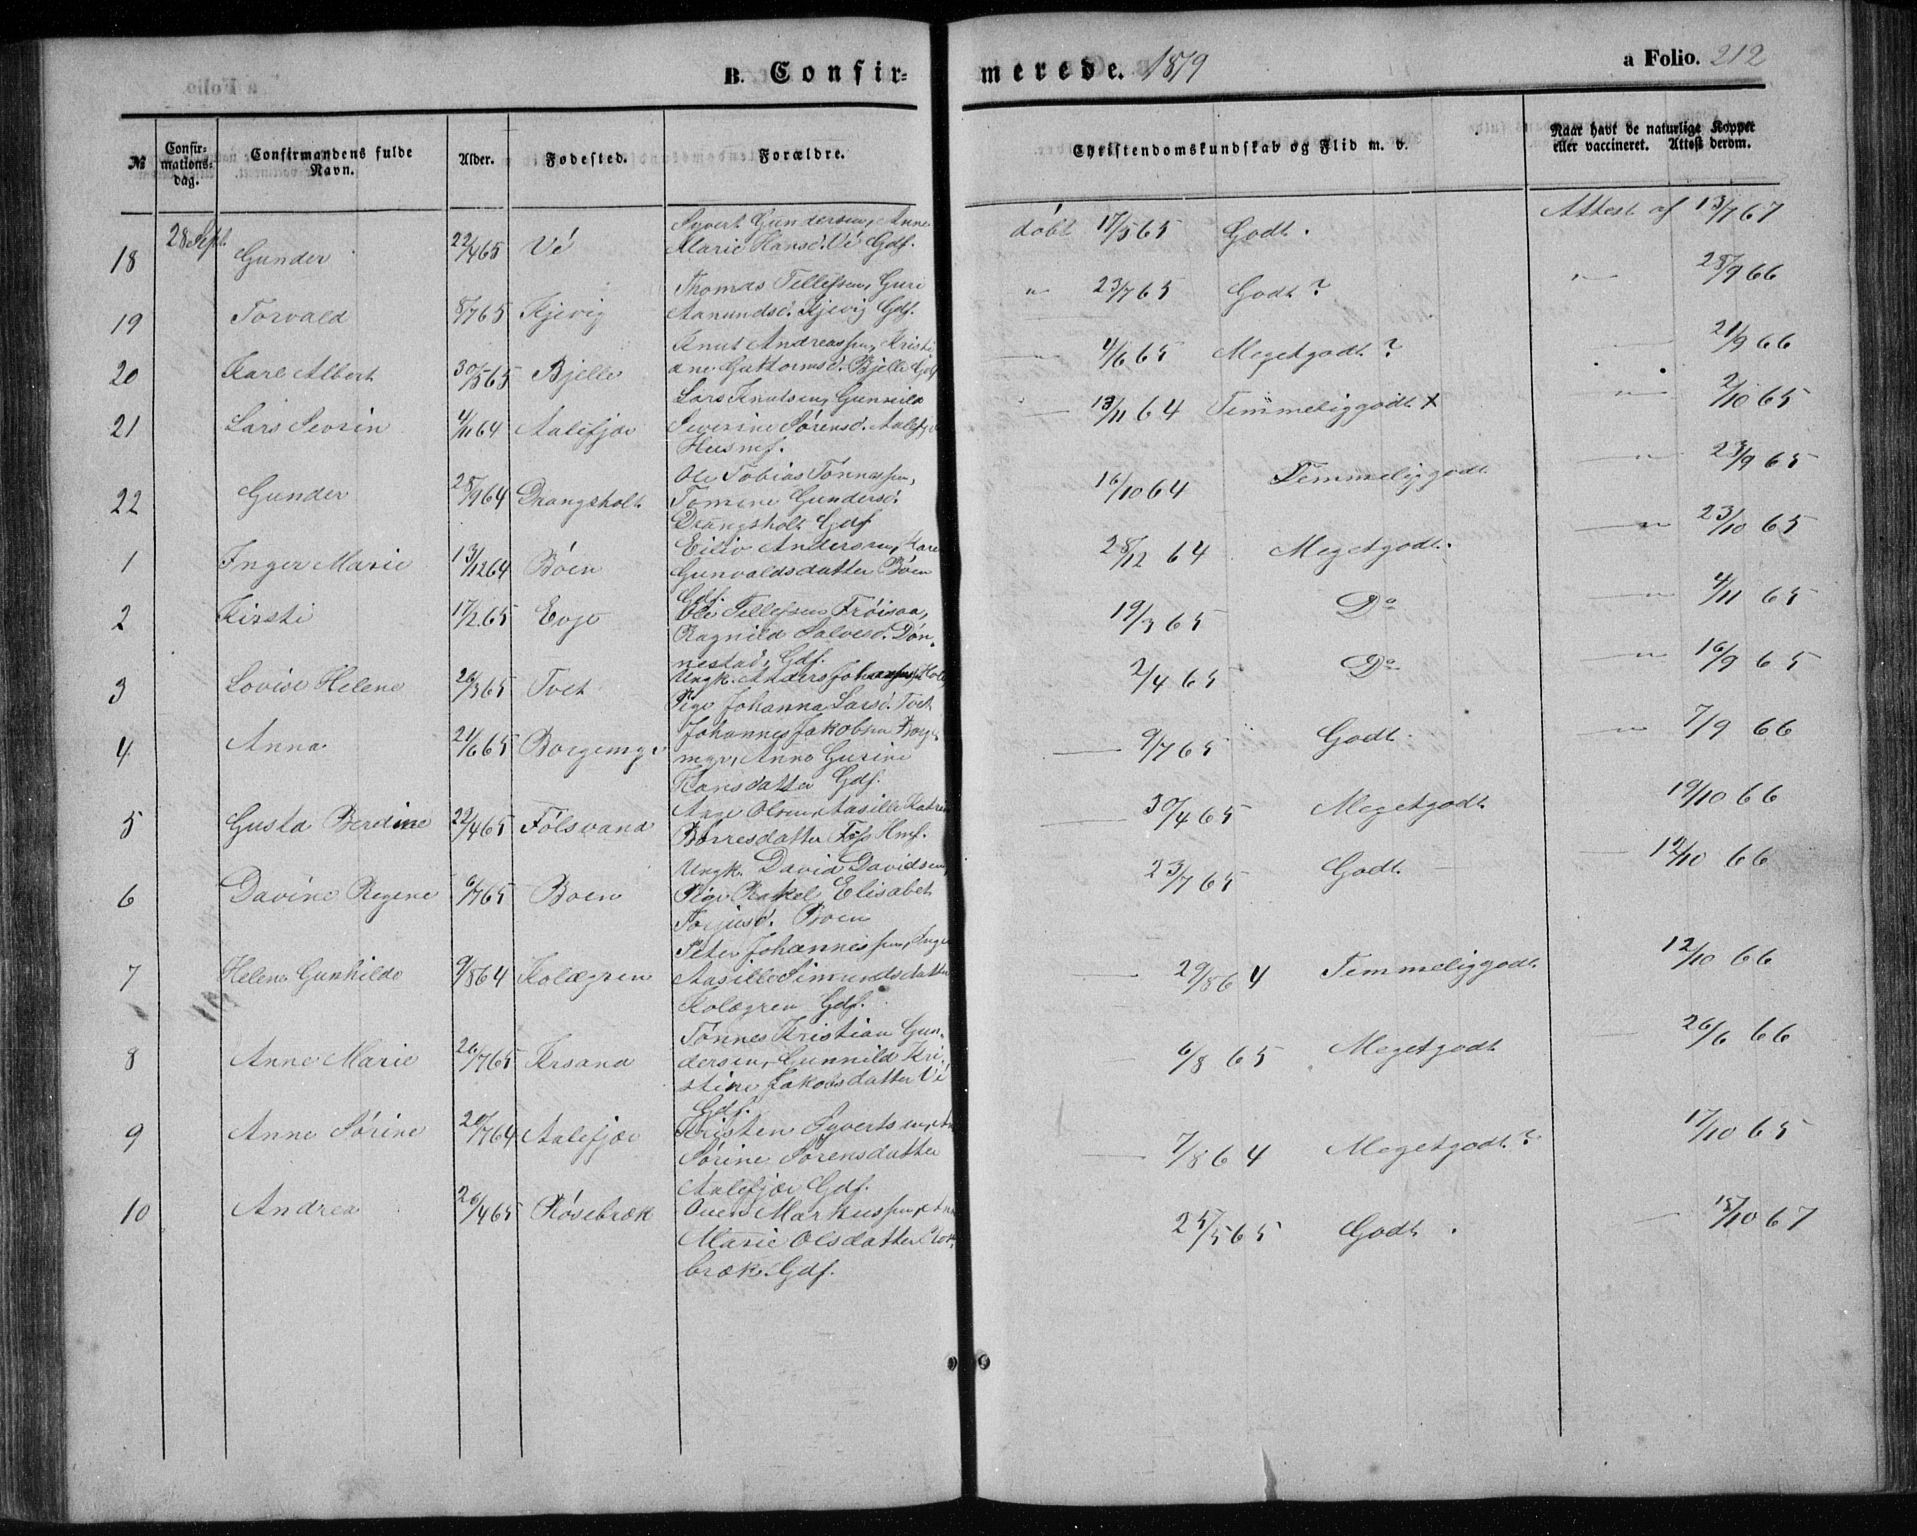 B. Confir-
merede. 1879
a Folio. 212
№
Confir-
mations-
dag.
Confirmandens fulde
Navn.
Alder.
Fødested.
Forældre.
Christendomskundskab og Flid m. v.
Naar havt de naturlige Kopper
eller vaccineret. Attest derom.
28 Sept.
18 Gunder 22/4 65 Vé
Syvert Gundersen, Anne
Marie Hansd. Vé Gdf.
døbt 17/5 65 Godt. Attest af 13/7 67
19 Torvald 8/7 65 Kjevig
Thomas Tellefsen, Guri
Aanundsd. Kjevig Gdf.
" 23/7 65 Godt? " 28/9 66
20 Karl Albert 30/5 65 Bjelle
Knut Andreassen, Kristi
ane Guttormsd. Bjelle Gdf
— 4/6 65 Megetgodt? — 21/9 66
21 Lars Sevrin 4/11 64 Aalefjær
Lars Knutsen, Gunnild
Severine Sørensd. Aalefjær
Husmf.
— 13/11 64 Temmeliggodt x " 2/10 65
22 Gunder 25/9 64 Drangsholt
Ole Tobias Tønnessen,
Tomine Gundersd.
Drangsholt Gdf
16/10 64 Temmeliggodt " 23/9 65
1 Inger Marie 13/12 64 Bóen
Eiliv Andersen, Karen
Gunvaldsdatter Bóen
Gdf.
28/12 64 Megetgodt. — " 23/10 65
2 Kirsti 17/2 65 Evje
Ole Tellefsen Frøisaa,
Ragnild Salvesd. Døn-
nestad, Gdf.
19/3 65 Do " 4/11 65
3 Lovise Helene 26/3 65 Tvet
Ungk. Anders
Pige Johanna Larsd. Tvet
2/4 65 Do " 16/9 65
4 Anna 21/6 65 Borgemyr
Johannes Jakobsen Borge
myr, Anne Gurine
Hansdatter Gdf.
— 9/7 65 Godt. " 7/9 66
5 Gusta Berdine 22/4 65 Følsvand
Aage Olsen, Aasille Katrine
Børresdatter Hmf.
— 30/4 65 Megetgodt 19/10 66
6 Davine Regine 6/7 65 Boen
Ungk. David Davidsen,
Pige Rakel Elisabet
Terjusd. Boen
23/7 65 Godt. — 12/10 66
7 Helene Gunhilde 9/8 64 Kolægren
Peter Johannessen, Inger
Aasille Simundsdatter
Kolægren Gdf.
— 29/8 64 Temmeliggodt 12/10 66
8 Anne Marie 26/7 65 Krsand
Tønnes Kristian Gun-
dersen, Gunnild Kri-
stine Jakobsdatter Vé
Gdf.
— 6/8 65 Megetgodt — 26/6 66
9 Anne Sørine 20/7 64 Aalefjær
Kristen Syvertsen,
Sørine Sørensdatter
Aalefjær Gdf.
— 7/8 64 Megetgodt? 17/10 65
10 Andrea 26/4 65 Røsebræk
Ouen Markussen,
Marie Olsdatter Røse
bræk Gdf.
25/5 65 Godt. — 15/10 67